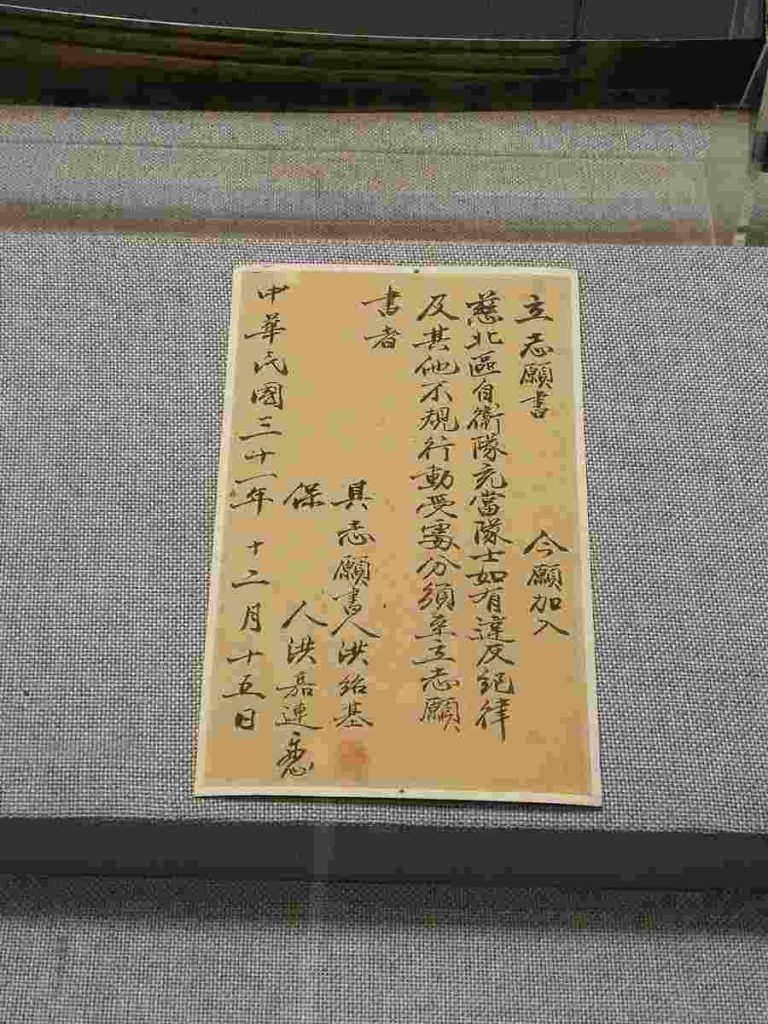 立志願書 今願加入
慈北區自衛隊充當隊士如有違反紀律
及其他不規行動受處分須至立志願
書者
具志願書人洪紹基
保 人洪嘉連
中華民國三十一年 十二月十五日